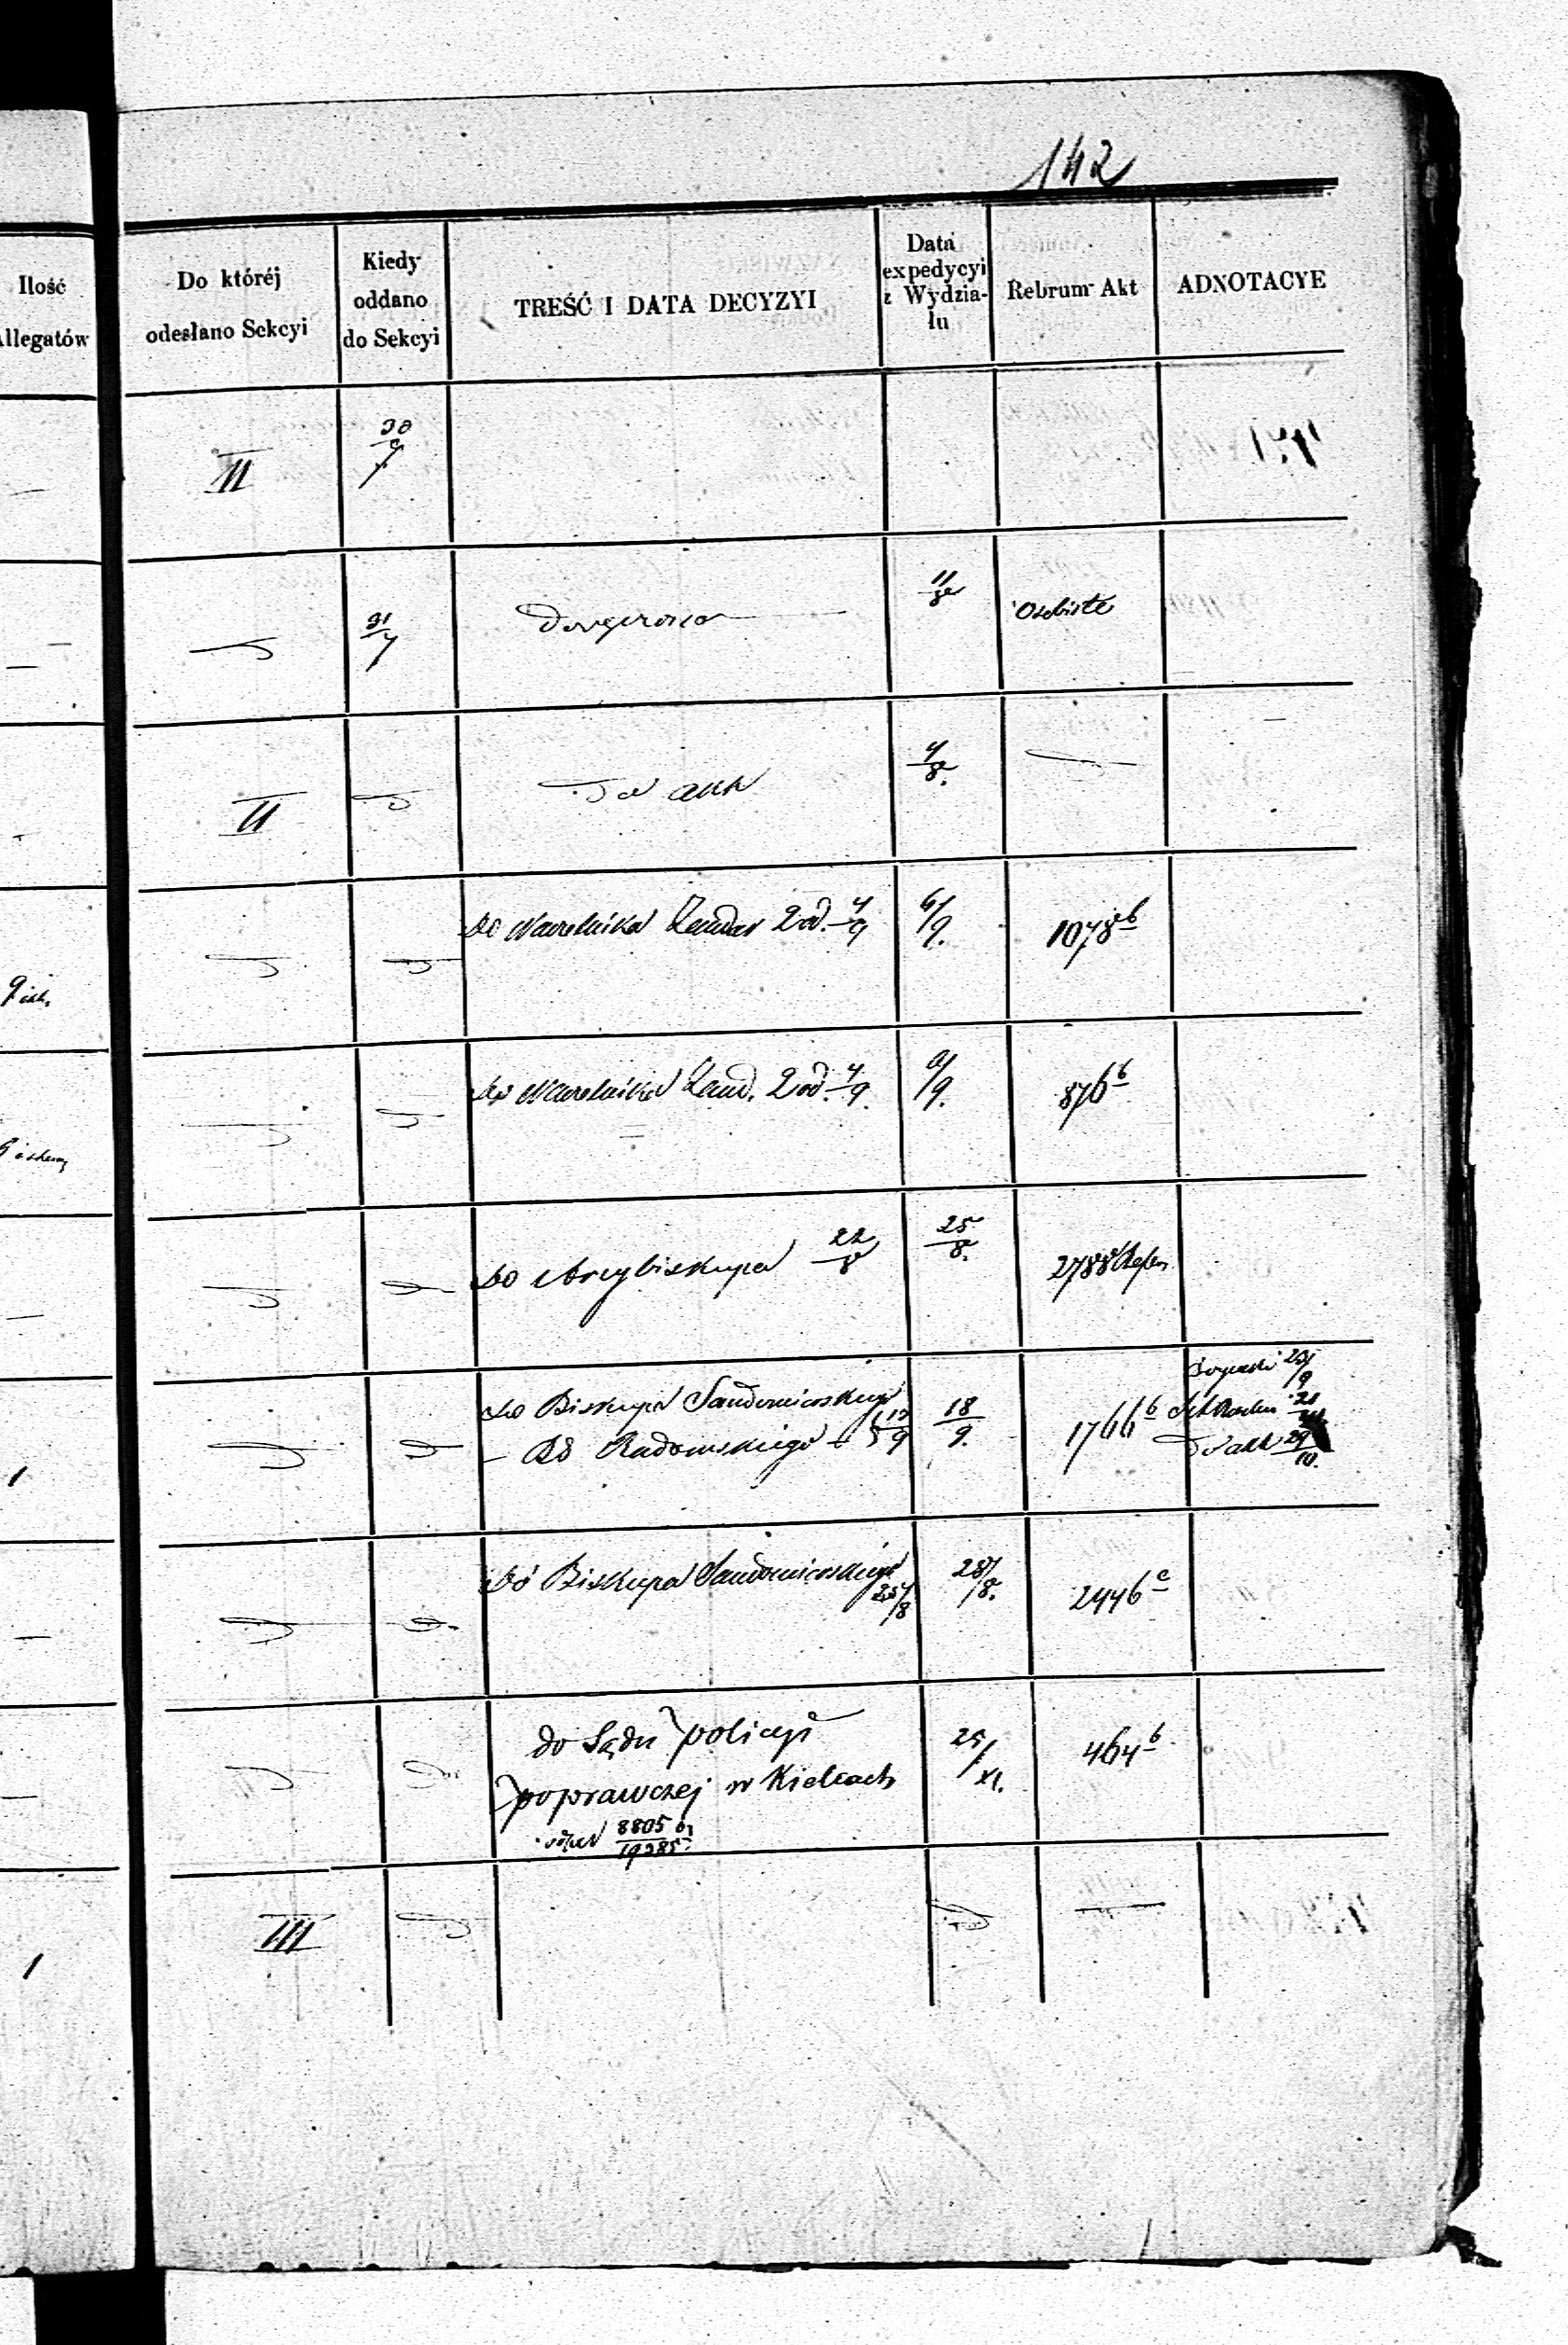 142
Ilość
Allegatów
Do któréj
odesłano Sekcyi
Kiedy
oddano
do Sekcyi
TREŚĆ I DATA DECYZYI
Data
expedycyi
z Wydzia-
łu
Rebrum Akt
ADNOTACYE
II
30/7
31/7
Doręczono
11/8
Osobiste
II
Do akt
4/8.
Do Naczelnika Żandar 4/9
6/9.
1078 b
Do Naczelnika Żand. 4/9.
6/9.
876 b
Do Arcybiskupa 22/8
25/8.
2788
1
Do Biskupa Sandomierskiego
- Do Radomskiego 17/9
18/9.
1766 b
23/9
21
Do akt 29/10.
Do Biskupa Sandomierskiego
25/8
28/8.
2446 c
do Sądu policyi
poprawczej w Kielcach
8805
19385
25/XI.
464 b
1
III